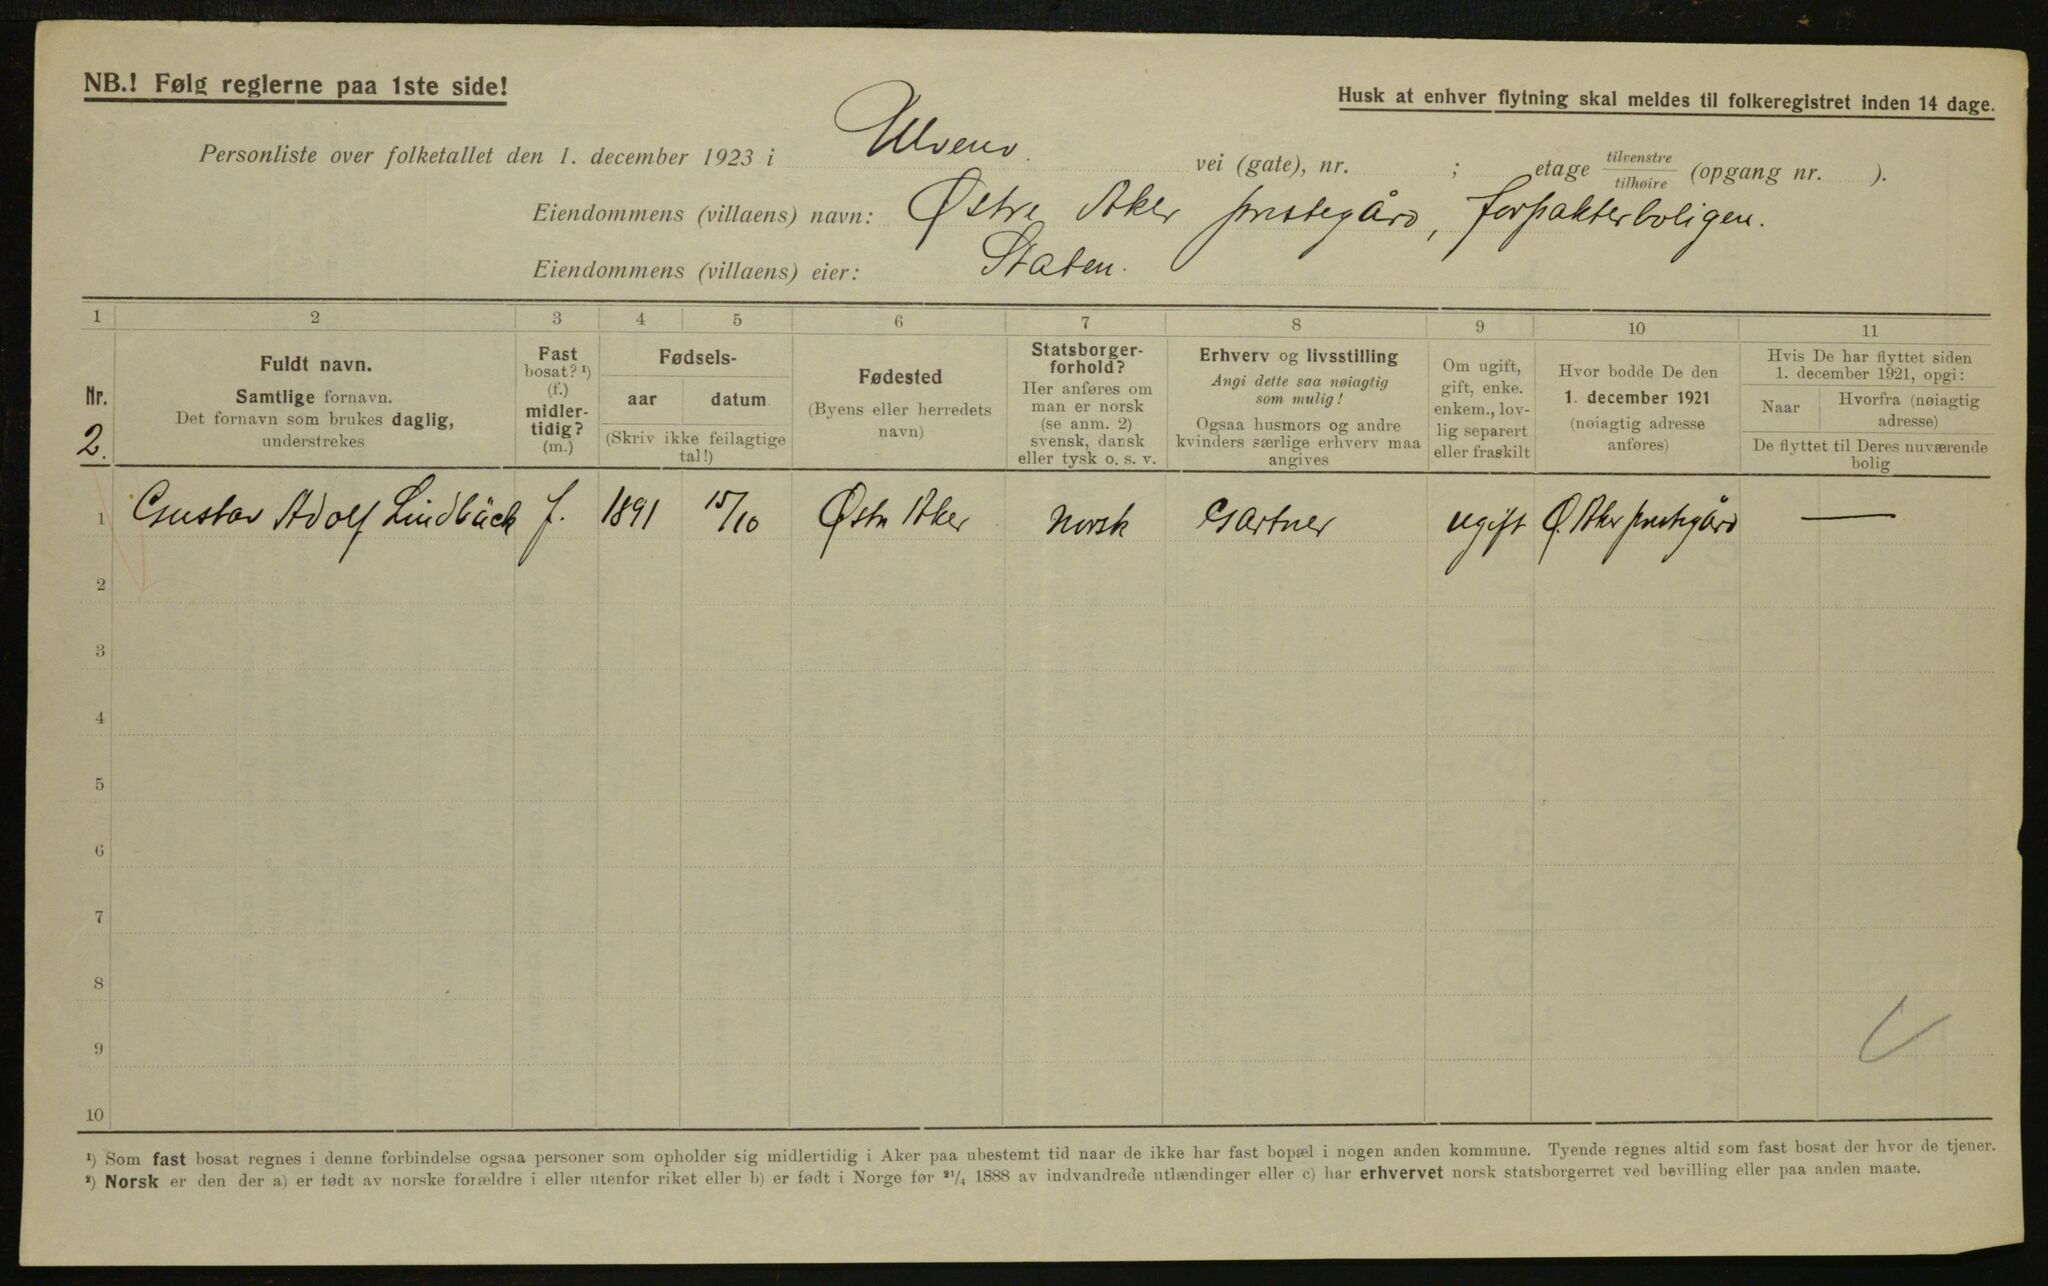 NB.! Følg reglerne paa 1ste side!
Husk at enhver flytning skal meldes til folkeregistret inden 14 dage.
Personliste over folketallet den 1. december 1923 i Ulvenv. vei (gate), nr. ; etage tilvenstre/tilhøire (opgang nr. ).
Eiendommens (villaens) navn: Østre Aker prestegård, forpakterboligen.
Eiendommens (villaens) eier: Staten.
1 2 3 4 5 6 7 8 9 10 11
Nr.
2.
Fuldt navn.
Samtlige fornavn.
Det fornavn som brukes daglig,
understrekes
Fast
bosat? ¹)
(f.)
midler-
tidig?
(m.)
Fødsels-
aar datum
(Skriv ikke feilagtige
tal!)
Fødested
(Byens eller herredets
navn)
Statsborger-
forhold?
Her anføres om
man er norsk
(se anm. 2)
svensk, dansk
eller tysk o. s. v.
Erhverv og livsstilling
Angi dette saa nøiagtig
som mulig!
Ogsaa husmors og andre
kvinders særlige erhverv maa
angives
Om ugift,
gift, enke.
enkem., lov-
lig separert
eller fraskilt
Hvor bodde De den
1. december 1921
(nøiagtig adresse
anføres)
Hvis De har flyttet siden
1. december 1921, opgi:
Naar
Hvorfra (nøiagtig
adresse)
De flyttet til Deres nuværende
bolig
1 Gustav Adolf Lindbäck f. 1891 15/10 Østre Aker Norsk Gartner ugift Ø. Aker prestegård —
2
3
4
5
6
7
8
9
10
¹) Som fast bosat regnes i denne forbindelse ogsaa personer som opholder sig midlertidig i Aker paa ubestemt tid naar de ikke har fast bopæl i nogen anden kommune. Tyende regnes altid som fast bosat der hvor de tjener.
²) Norsk er den der a) er født av norske forældre i eller utenfor riket eller b) er født i Norge før ²¹/₄ 1888 av indvandrede utlændinger eller c) har erhvervet norsk statsborgerret ved bevilling eller paa anden maate.